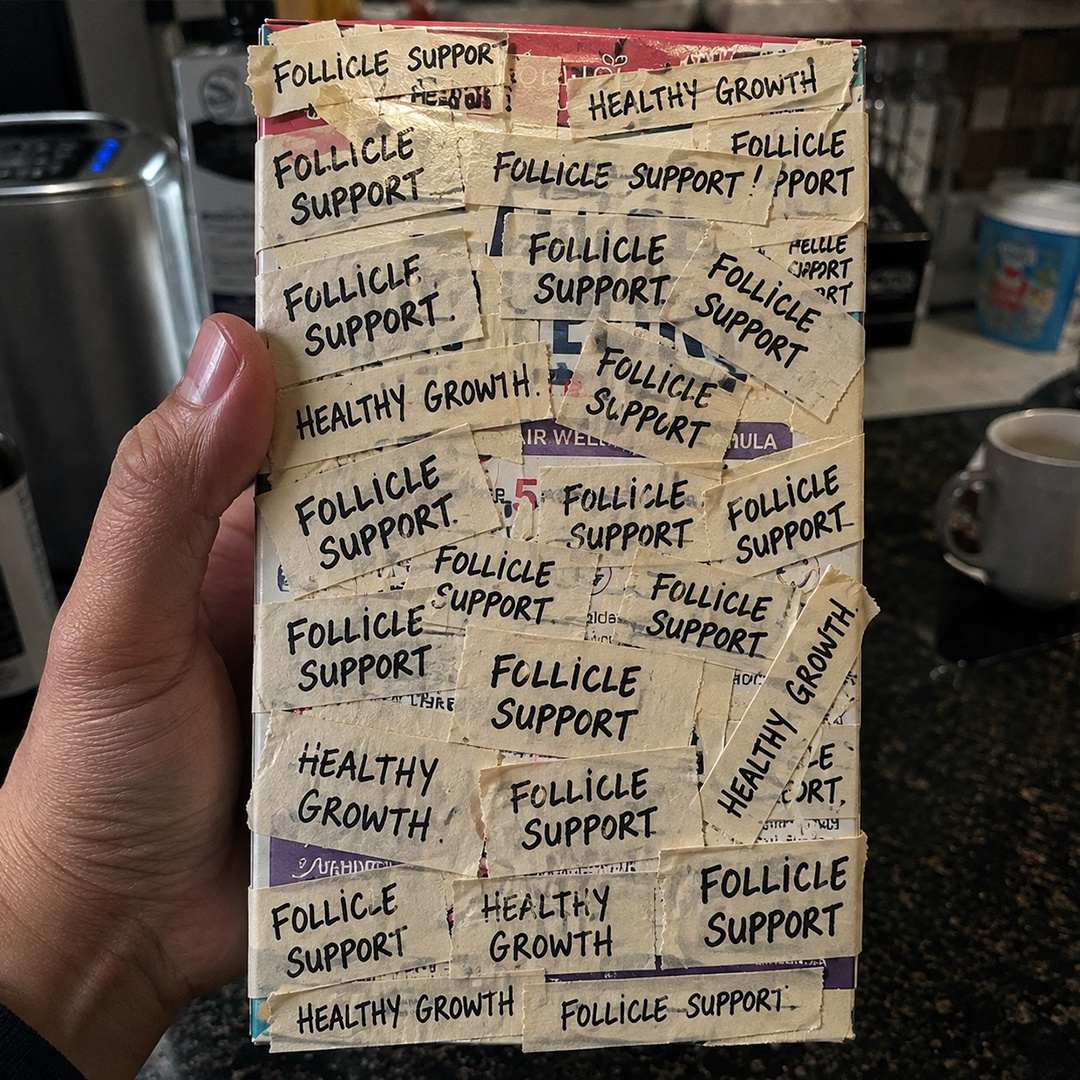 FOLLICLE SUPPOR
HEALTHY GROWTH
FOLLICLE
SUPPORT
FOLLICLE SUPPORT!
FOLLICLE
PPORT
FOLLICLE
SUPPORT.
FOLLICLE
SUPPORT.
FOLLICLE
SUPPORT
HEALTHY GROWTH.
FOLLICLE
SUPPORT
AIR WELL
ULA
FOLLICLE
SUPPORT.
5
FOLLICLE
SUPPORT
FOLLICLE
SUPPORT
FOLLICLE
SUPPORT.
FOLLICLE
SUPPORT
FOLLICLE
SUPPORT
FOLLICLE
SUPPORT
HEALTHY GROWTH.
HEALTHY
GROWTH.
FOLLICLE
SUPPORT
LE
ORT.
FOLLICLE
SUPPORT
HEALTHY
GROWTH
FOLLICLE
SUPPORT
HEALTHY GROWTH
FOLLICLE SUPPORT.